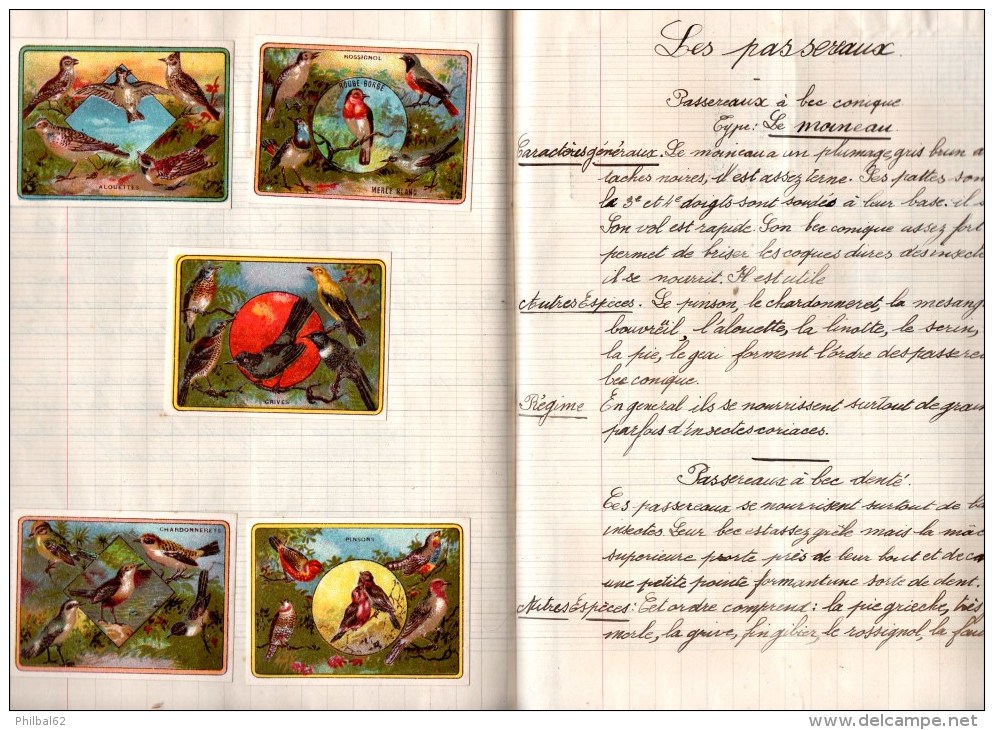 ALOUETTES
ROSSIGNOL
ROUGE GORGE
MERLE BLANC
GRIVES
CHARDONNERETS
PINSONS
Les passereaux
Passereaux à bec conique
Type: Le moineau
Caractères généraux. Le moineau a un plumage gris brun a
taches noires, il est assez terne. Ses pattes son
la 3e et 4e doigts sont soudés à leur base. il
Son vol est rapide. Son bec conique assez fort
permet de briser les coques dures des insecte
il se nourrit. Il est utile
Autres Espèces. Le pinson, le chardonneret, la mesang
bouvreüil, l'alouette, la linotte, le serin,
la pie, le geai forment l'ordre des passere
bec conique.
Régime En general ils se nourrissent surtout de grain
parfois d'insectes coriaces.
Passereaux à bec denté.
Ces passereaux se nourrisent surtout de
insectes Leur bec est assez grêle mais la mâc
superieure porte près de leur bout et de
une petite pointe formant une sorte de dent.
Autres Espèces: Cet ordre comprend: la pie grieche, très
merle, la grive, fin gibier, le rossignol, la fau
Philbal62
www.delcampe.net